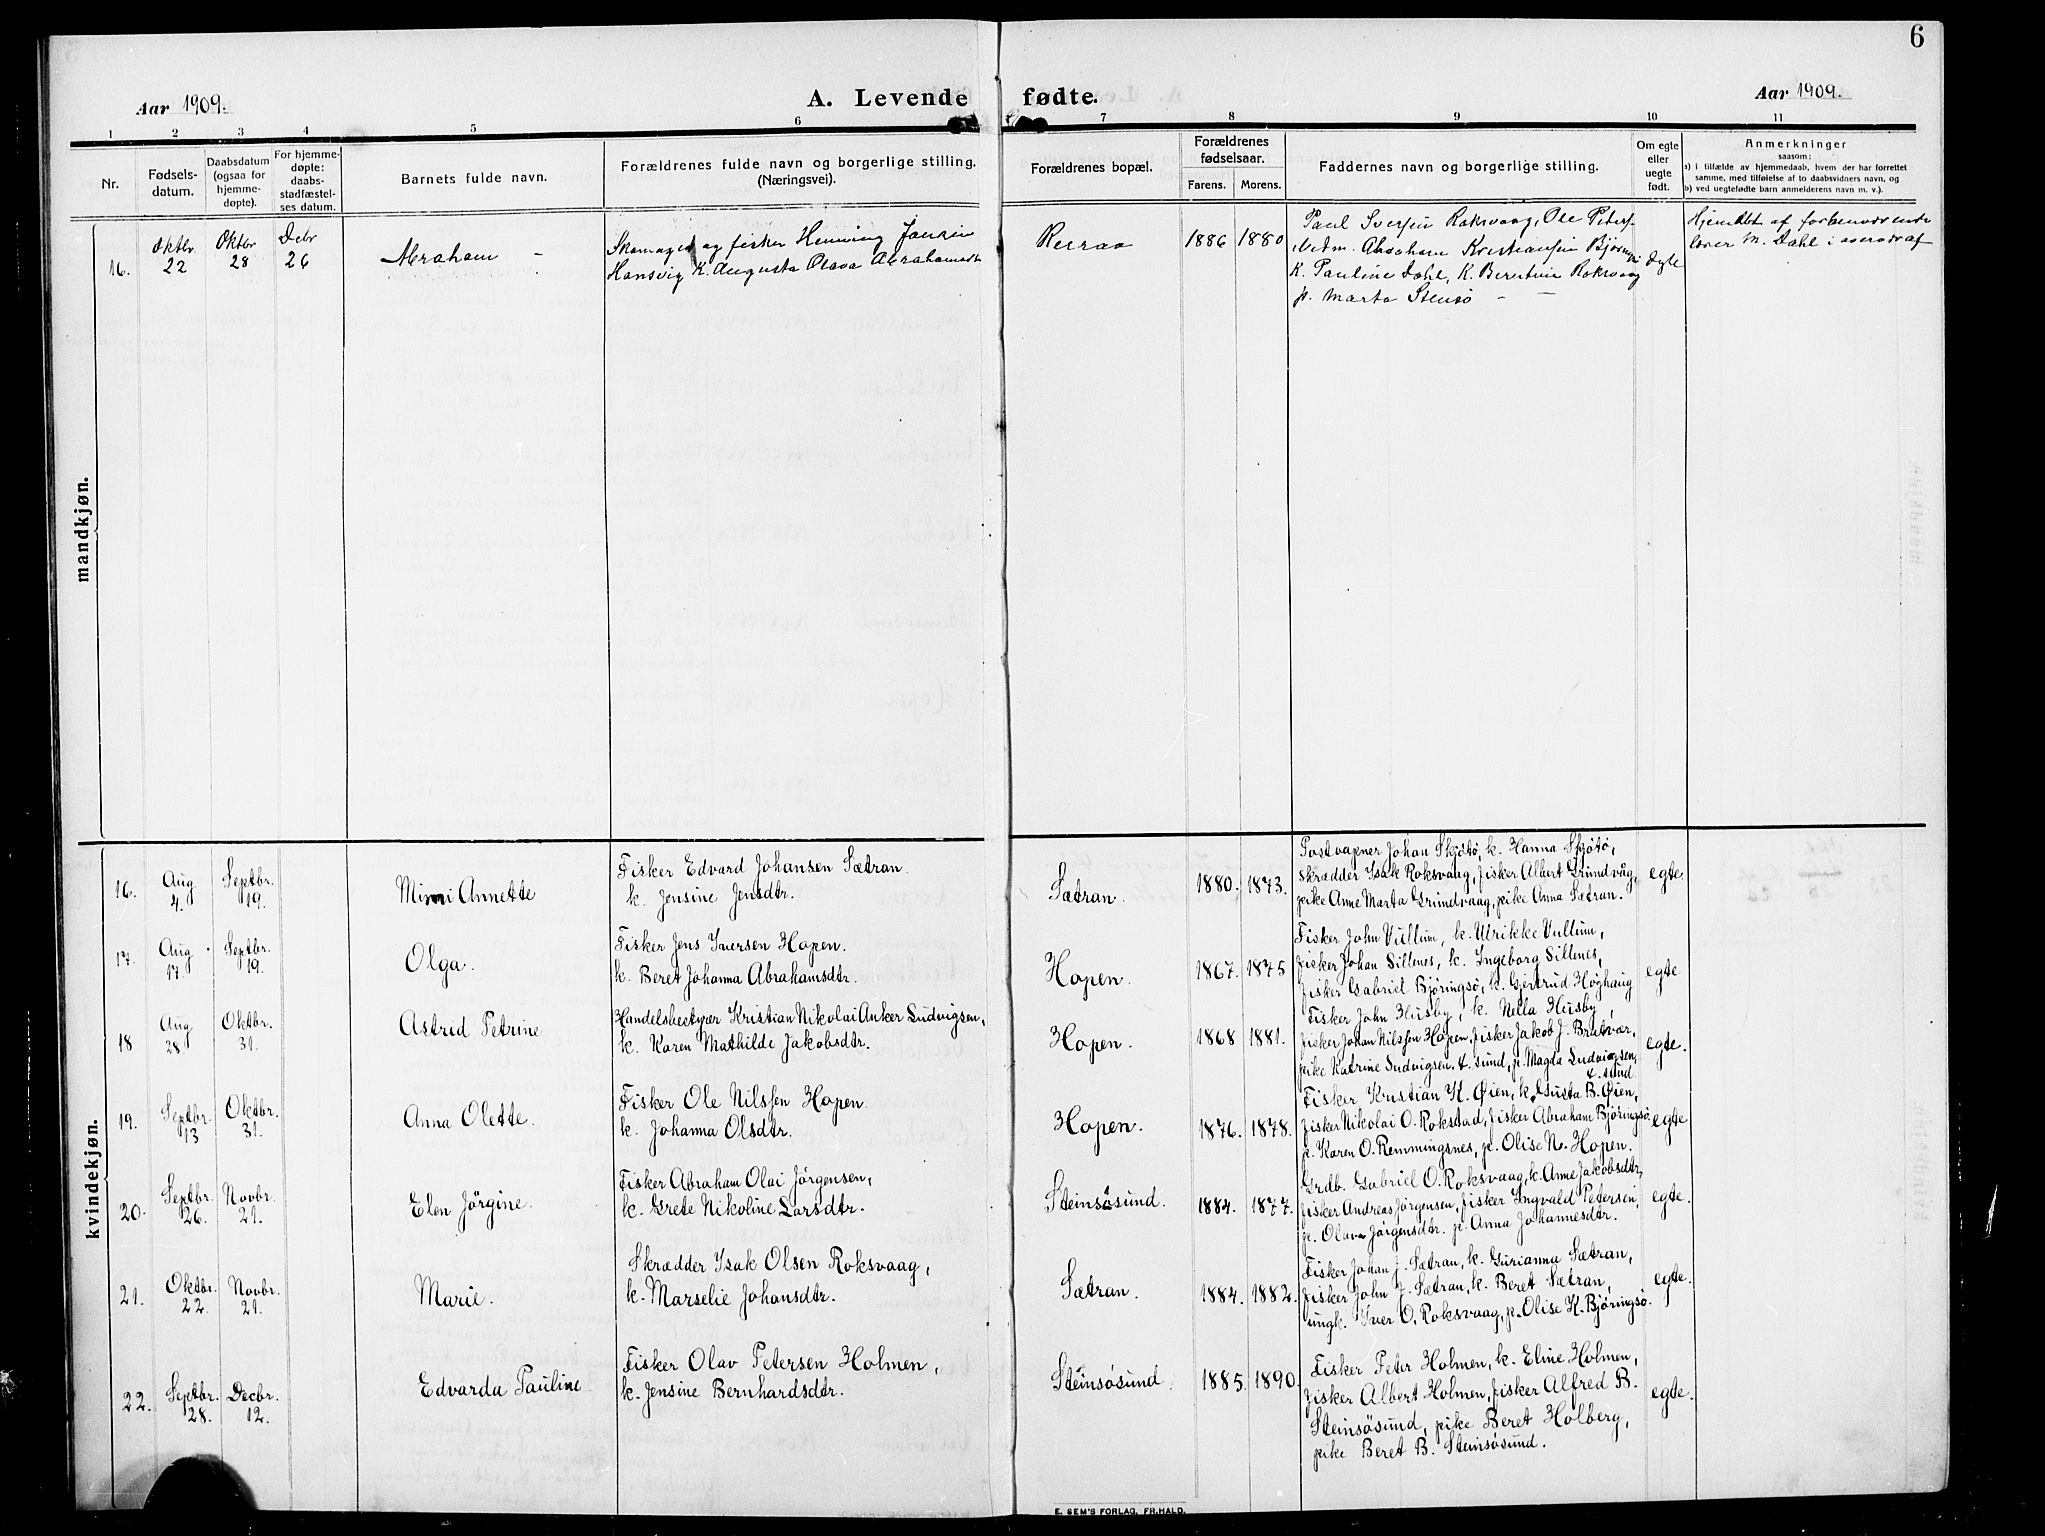 6
Aar 1909.
A. Levende fødte.
Aar 1909.
1 2 3 4 5 6 7 8 9 10 11
Nr.
Fødsels-
datum.
Daabsdatum
(ogsaa for
hjemme-
døpte).
For hjemme-
døpte:
daabs-
stadfæstel-
ses datum.
Barnets fulde navn.
Forældrenes fulde navn og borgerlige stilling.
(Næringsvei).
Forældrenes bopæl.
Forældrenes
fødselsaar.
Farens. Morens.
Faddernes navn og borgerlige stilling.
Om egte
eller
uegte
født.
Anmerkninger
saasom:
a) i tilfælde av hjemmedaab, hvem der har forrettet
samme, med tilføielse af to daabsvidners navn, og
b) ved uegtefødte barn anmelderens navn m. v.).
mandkjøn.
16.
Oktbr
22
Oktbr
28
Debr
26
Abraham
Skomager og fisker Henning
Hansvig K. Augusta Olava
1886 1880
Paul Iversen Roksvaag, Ole
Kristiansen
K. Pauline Dahl, K. Berntine Roksvaag
p. Marta Stensø
M. Dahl i
kvindekjøn.
16.
Aug
4.
Septbr.
19.
Mimi Annette
Fisker Edvard Johansen Sætran.
k. Jensine Jensdtr.
Sætran.
1880. 1873.
Johan Skjøtø, k. Hanna Skjøtø,
skrædder Isak Roksvaag, fisker Albert Grundvåg,
pike Anne Marta Grundvaag, pike Anna Sætran.
egte.
17.
Aug
17.
Septbr.
19.
Olga.
Fisker Jens Iversen Hopen.
k. Beret Johanna Abrahamsdtr.
Hopen.
1867. 1875
Fisker John Vullum, k. Ulrikke Vullum,
fisker Johan Sillenes, k. Ingeborg Sillenes,
fisker Gabriel Björingsö, k. Gjertrud Höghaug
egte
18
Aug
28.
Oktbr.
31.
Astrid Petrine
Handelsbestyrer Kristian Nikolai Anker Ludvigsen,
k. Karen Mathilde Jakobsdtr.
Hopen.
1868 1881.
Fisker John Husby, k. Nella Husby,
fisker Johan Nilssen Hopen, fisker Jakob J. Bratvær,
pike Katrine Ludvigsen. K. sund, p. Magda Ludvigsen,
K. sund.
egte.
19.
Septbr.
13
Oktbr.
31.
Anna Olette.
Fisker Ole Nilssen Hopen.
k. Johanna Olsdtr.
Hopen.
1876. 1878.
Fisker Kristian K. Øien, k. B. Øien,
fisker Nikolai O. Rokstad, fisker Abraham Björingsö.
p. Karen O. Remmingsnes, p. Olise N. Hopen.
egte
20.
Septbr.
26.
Novbr.
21.
Elen Jörgine.
Fisker Abraham Olai Jörgensen,
k. Grete Nikoline Larsdtr.
Steinsösund.
1884. 1877.
Grdb. Gabriel O. Roksvaag, k. Anne Jakobsdtr,
fisker Andreas Jörgensen, fisker Ingvald Petersen,
p. Olava Jörgensdtr. p. Anna Johannesdtr.
egte.
21.
Oktbr.
22.
Novbr.
21.
Marie.
Skrædder Isak Olsen Roksvaag,
k. Marselie Johansdtr.
Sætran.
1884. 1882.
Fisker Johan J. Sætran, k. Gurianna Sætran,
fisker John J. Sætran, k. Beret Sætran,
ungk. Iver O. Roksvaag, p. Olise K. Björingsö.
egte.
22.
Septbr.
28.
Decbr.
12.
Edvarda Pauline
Fisker Olav Petersen Holmen,
k. Jensine Bernhardsdtr.
Steinsösund.
1885. 1890.
Fisker Peter Holmen, k. Eline Holmen,
fisker Albert Holmen, fisker Alfred B.
Steinsösund, pike Beret Holberg,
pike Beret B. Steinsösund.
egte.
E. SEM'S FORLAG, FR.HALD.